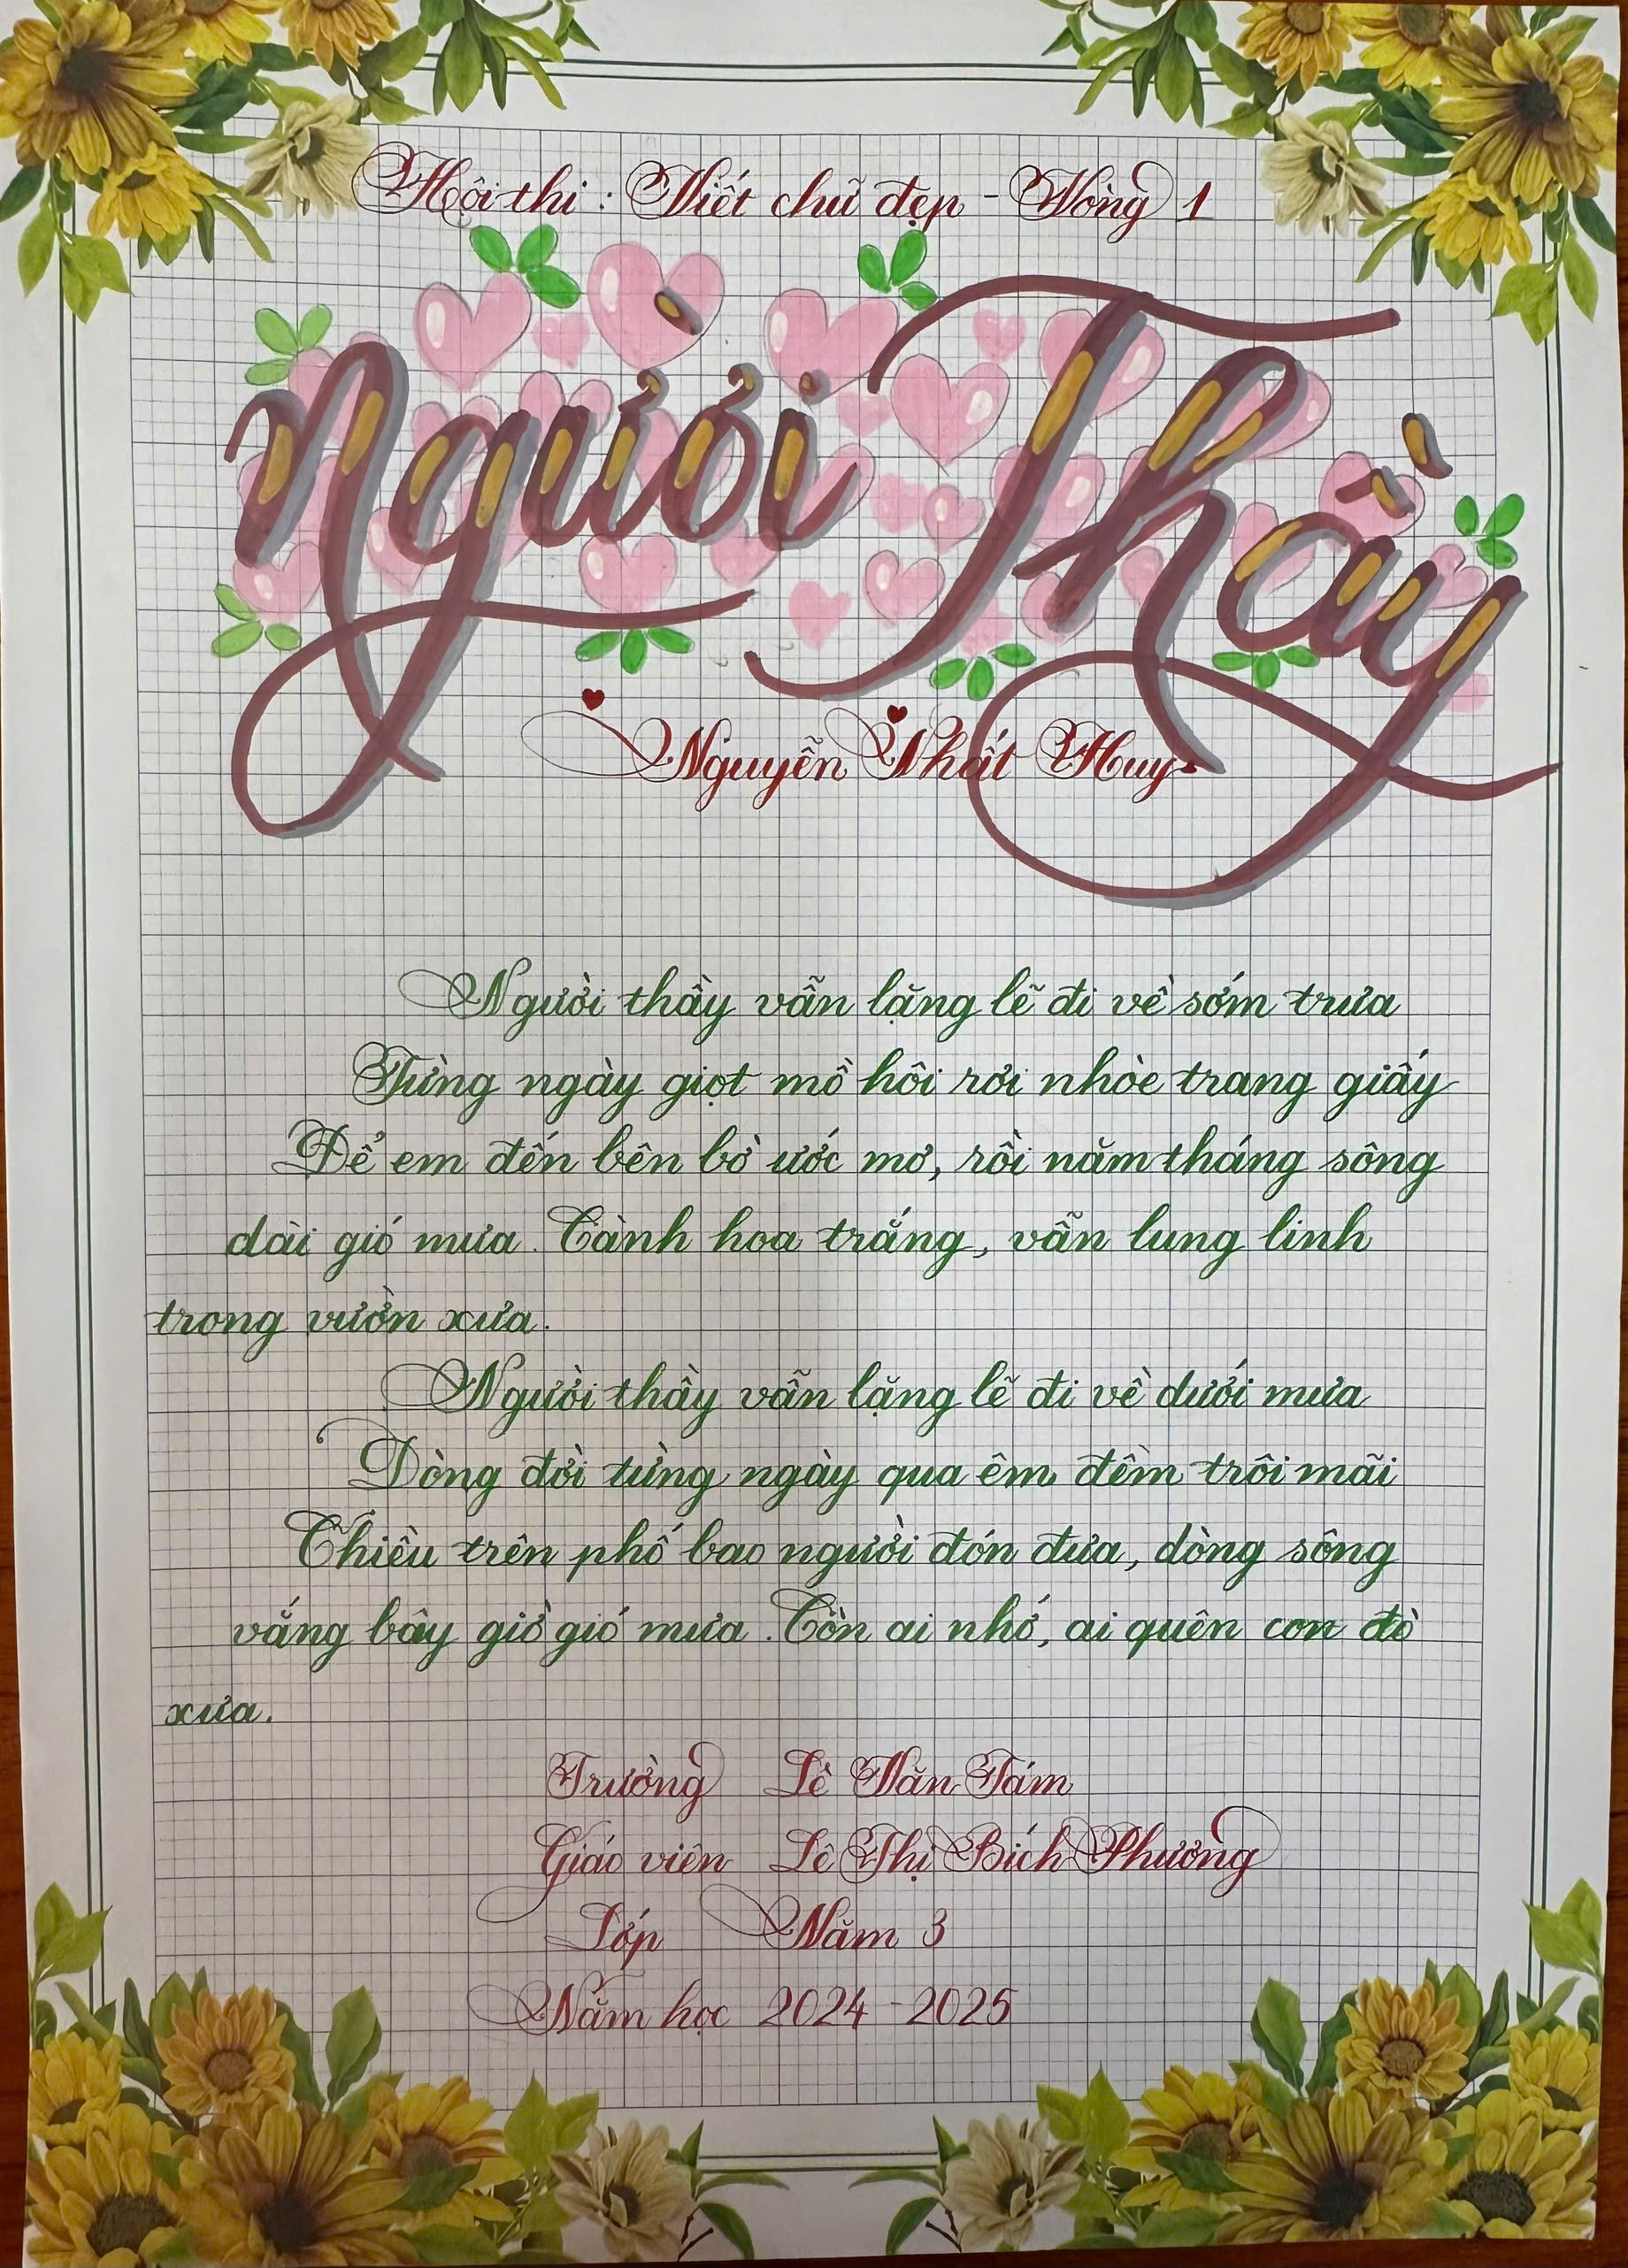 Hội thi : Viết chữ đẹp - Vòng 1
Người Thầy
Nguyễn Nhất Huy
Người thầy vẫn lặng lẽ đi về sớm trưa
Từng ngày giọt mồ hôi rơi nhòe trang giấy
Để em đến bên bờ ước mơ, rồi năm tháng sông
dài gió mưa. Cành hoa trắng, vẫn lung linh
trong vườn xưa.
Người thầy vẫn lặng lẽ đi về dưới mưa
Dòng đời từng ngày qua êm đềm trôi mãi
Chiều trên phố bao người đón đưa, dòng sông
vắng bây giờ gió mưa. Còn ai nhớ, ai quên con đò
xưa.
Trường Lê Văn Tám
Giáo viên Lê Thị Bích Phương
Lớp Năm 3
Năm học 2024 - 2025